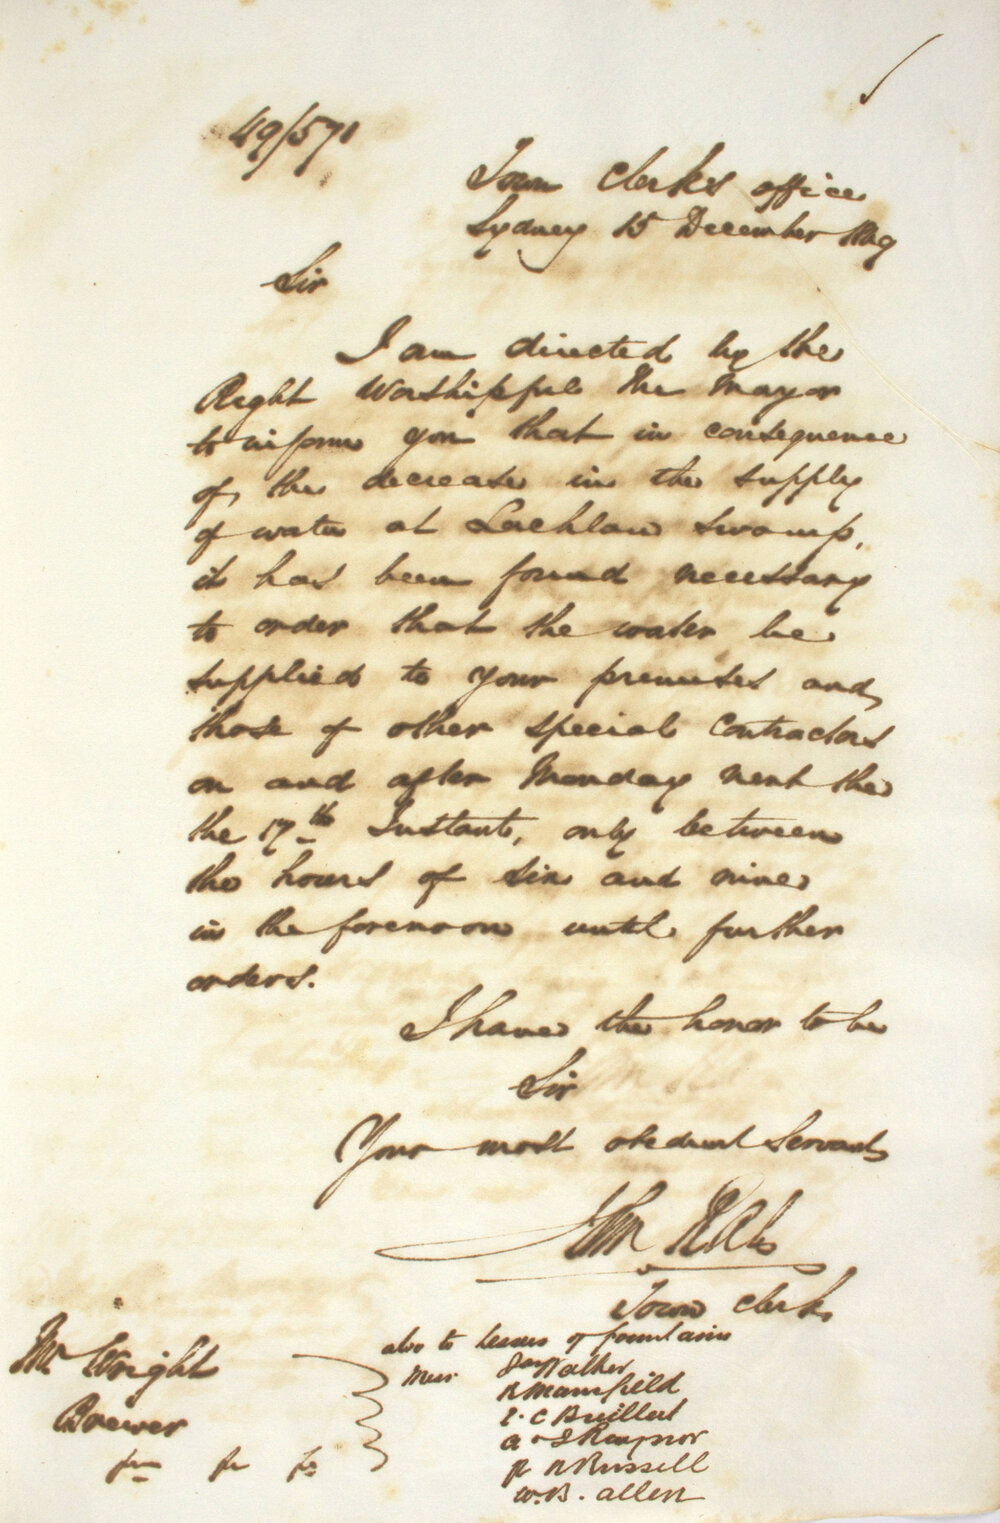 49/571
Town Clerk's office
Sydney 15 December 1849
Sir
I am directed by the
Right Worshipful the Mayor
to inform you that in consequence
of the decrease in the supply
of water at Lachlan Swamp,
it has been found necessary
to order that the water be
supplied to your premises and
those of other special Contractors
on and after Monday next the
the 17th Instant, only between
the hours of six and nine
in the forenoon until further
orders.
I have the honor to be
Sir
Your most obedient Servant
John
Town Clerk
also to Lessees of fountains
Mr Wright
Brewer
Messr. Walker
R Mansfield
C
a
R Russell
W.B. Allen